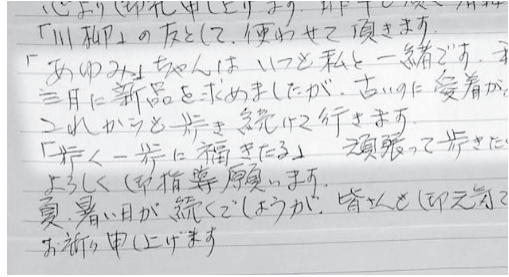 心より御礼申し上げます.
「川柳」の友として、使わせて頂きます.
「あゆみ」ちゃんは いつも私と一緒です.
三月に新品を求めましたが、古いのに愛着が
これからも歩き続けて行きます.
「歩く一歩に福きたる」 頑張って歩きたい
よろしく御指導願います.
夏.暑い日が続くでしょうが.皆さんも御元気で
お祈り申し上げます